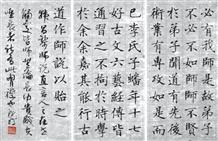 必有我師是故弟子不
必不如師師不必賢
於弟子聞道有先後
術業有專攻如是而
已李氏子蟠年十七
好古文六藝經傳皆
通習之不拘於時學
於余余嘉其能行古
道作師說以貽之